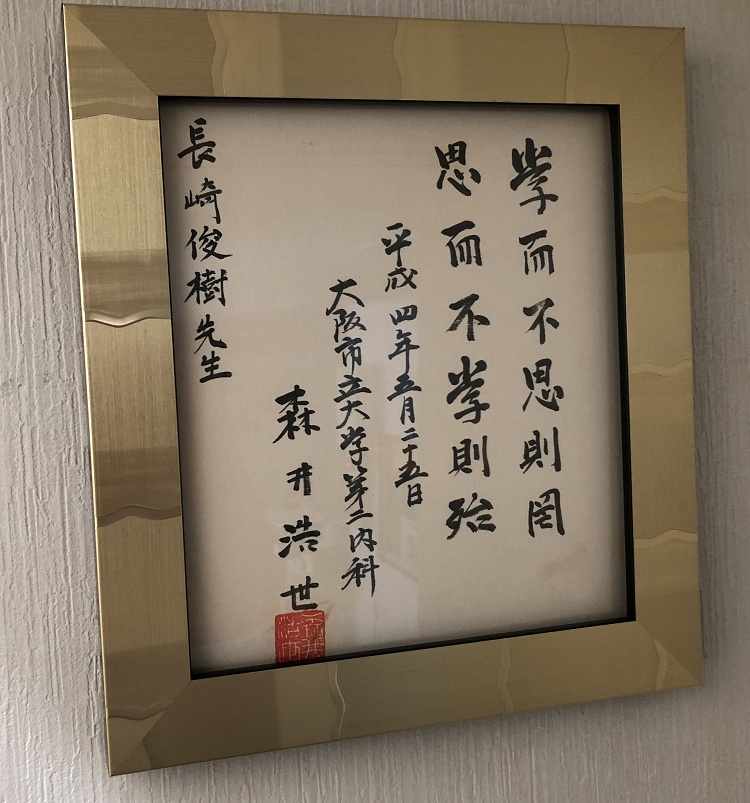 学而不思則罔
思而不学則殆
平成四年五月二十五日
大阪市立大学第二内科
森井浩世
長崎俊樹先生